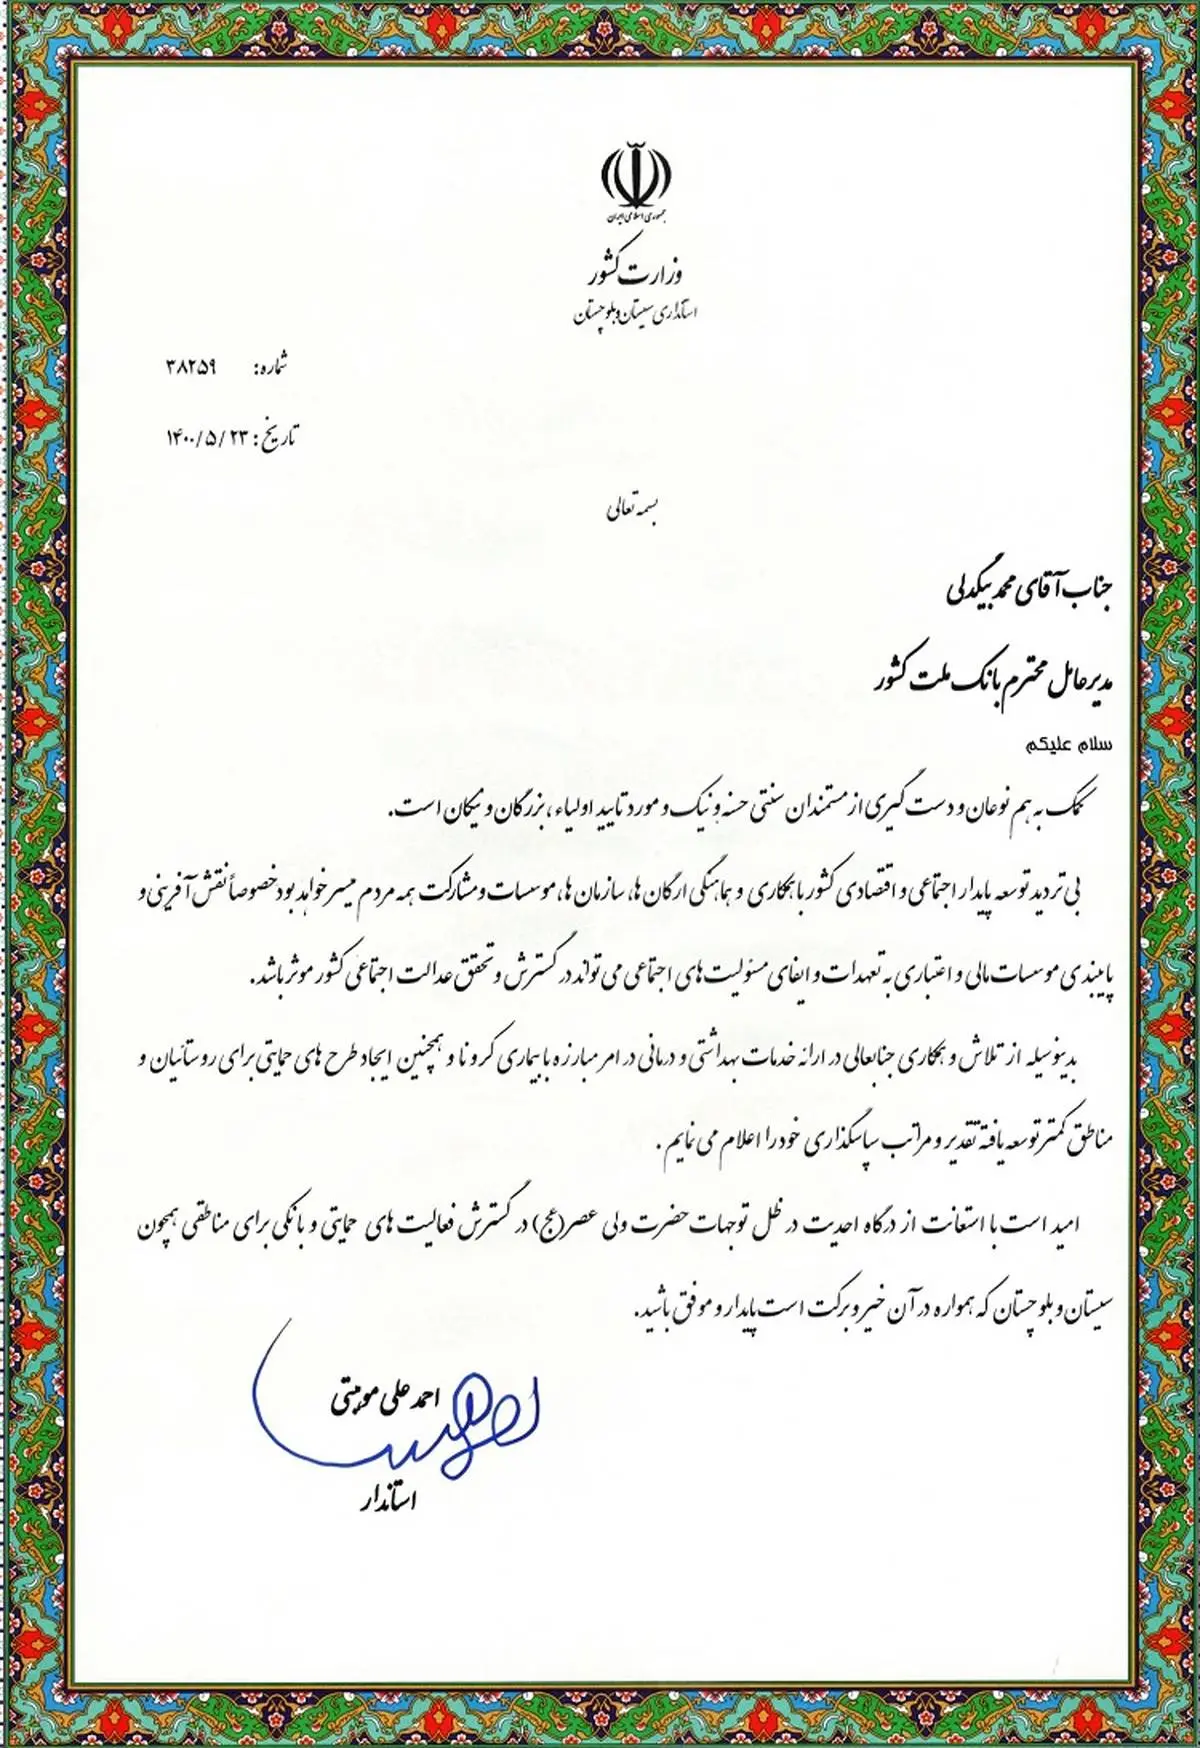 جمهوری اسلامی ایران
وزارت کشور
استانداری سیستان و بلوچستان
شماره: ۳۸۲۵۹
تاریخ: ۱۴۰۰/۵/۲۳
بسمه تعالی
جناب آقای محمد بیگدلی
مدیرعامل محترم بانک ملت کشور
سلام علیکم
کمک به هم نوعان و دست گیری از مستمندان سنتی حسنه و نیک و مورد تایید اولیاء، بزرگان و نیکان است.
بی تردید توسعه پایدار اجتماعی و اقتصادی کشور با همکاری و هماهنگی ارگان ها، سازمان ها، موسسات و مشارکت همه مردم میسر خواهد بود خصوصاً نقش آفرینی و
پایبندی موسسات مالی و اعتباری به تعهدات و ایفای مسئولیت های اجتماعی می تواند در گسترش و تحقق عدالت اجتماعی کشور موثر باشد.
بدینوسیله از تلاش و همکاری جنابعالی در ارائه خدمات بهداشتی و درمانی در امر مبارزه با بیماری کرونا و همچنین ایجاد طرح های حمایتی برای روستائیان و
مناطق کمتر توسعه یافته تقدیر و مراتب سپاسگذاری خود را اعلام می نمایم .
امید است با استعانت از درگاه احدیت در ظل توجهات حضرت ولی عصر(عج) در گسترش فعالیت های حمایتی و بانکی برای مناطقی همچون
سیستان و بلوچستان که همواره در آن خیر و برکت است پایدار و موفق باشید.
احمد علی موهبتی
استاندار